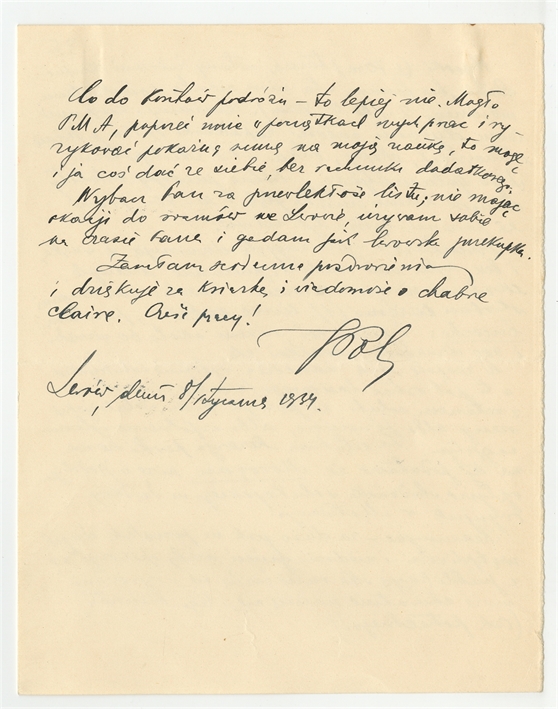 Co do kosztów podróży – to lepiej nie. Mogło
PMA, poprzeć mnie w początkach mych prac i ry-
zykować pokaźną sumę na moją naukę, to mogę
i ja coś dać ze siebie, bez rachunku dodatkowego.
Wybacz Pan za przewlekłość listu, nie mając
okazji do rozmów we Lwowie, używam sobie
na czasie Pana i gadam jak lwowska przekupka.
Zasyłam serdeczne pozdrowienia
i dziękuję za książkę i wiadomość o Chabre
Claire. Cześć pracy!
Lwów, dnia 8/stycznia 1934.